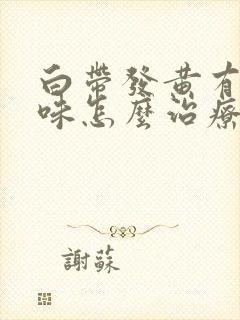 白帶發黃有
味怎麼治療
謝蘇